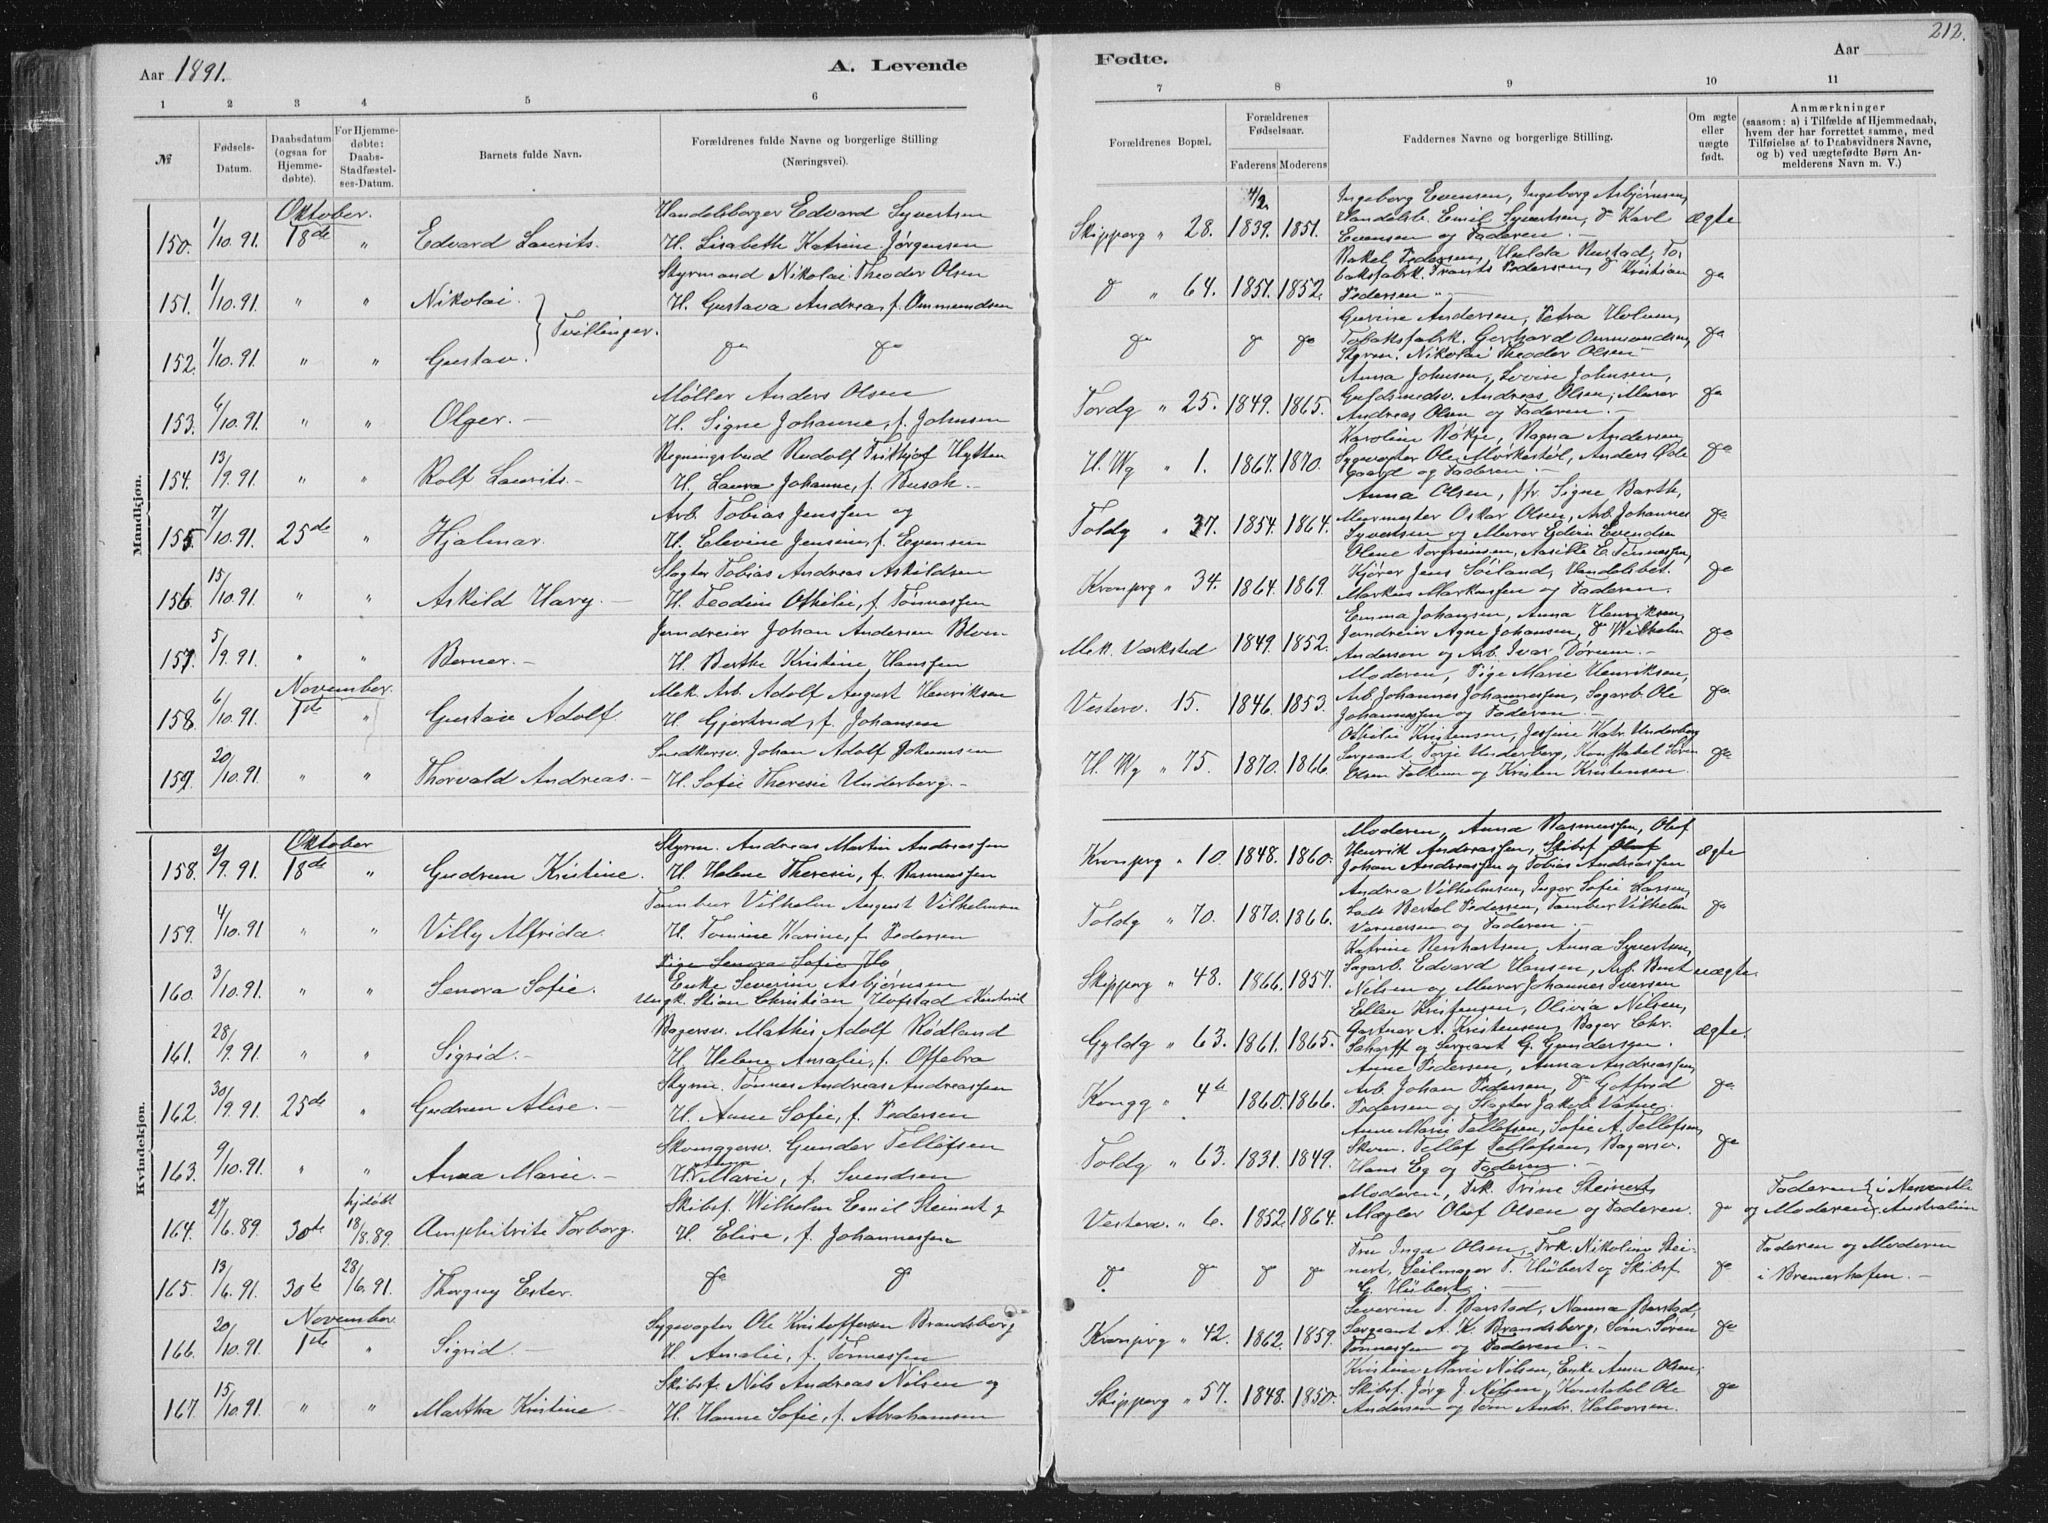 Aar 1891.
A. Levende
Fødte.
Aar
212.
1 2 3 4 5 6 7 8 9 10 11
№
Fødsels-Datum.
Daabsdatum (ogsaa for Hjemmedøbte).
For Hjemmedøbte: Daabs-Stadfæstelses-Datum.
Barnets fulde Navn.
Forældrenes fulde Navne og borgerlige Stilling (Næringsvei).
Forældrenes Bopæl.
Forældrenes Fødselsaar.
Faderens Moderens
Faddernes Navne og borgerlige Stilling.
Om ægte eller uægte født.
Anmærkninger (saasom: a) i Tilfælde af Hjemmedaab, hvem der har forrettet samme, med Tilføielse af to Daabsvidners Navne, og b) ved uægtefødte Børn Anmelderens Navn m. V.)
Mandkjøn.
Oktober.
150. 1/10.91. 18de " Edvard Laurits. Handelsborger Edvard Syvertsen
H. Lisabeth Katrine Jørgensen
Skipperg " 28. 4/2 1839. 1851. Ingeborg Evensen, Ingeborg Asbjørnsen,
Handelsb. Emil Syvertsen, do Karl
Evensen og Faderen. — ægte
151. 1/10.91. " " Nikolai. Styrmand Nikolai Theodor Olsen
H. Gustava Andrea, f. Ommundsen
do " 64. 1851. 1852. Rakel Pedersen, Hulda Rustad, To-
baksfabrk. Frants Pedersen, do Kristian
Pedersen " — do
Tvillinger.
152. 1/10.91. " " Gustav. do do
do do do Gurine Andersen, Petra Holum,
Tobaksfabrk. Gerhard Ommundsen,
Styrm. Nikolai Theodor Olsen do
153. 6/10.91. " " Olger. — Møller Anders Olsen
H. Signe Johanne, f. Johnsen
Tordg " 25. 1849. 1865. Anna Johnsen, Lovise Johnsen,
Guldsmedsv. Andreas Olsen, Murer
Andreas Olsen og Faderen. — do
154. 13/9.91. " " Rolf Laurits. Regningsbud Rudolf Fritjof Hytten
H. Laura Johanne, f. Busch. —
H. Wg " 1. 1867. 1870. Karoline Røkje, Ragna Andersen,
Sygevogter Ole Mørkestøl, Anders Øde
gaard og Faderen. — do
155. 7/10.91. 25de " Hjalmar. Arb. Tobias Jenssen og
H. Elevine Jensen, f. Evensen
Toldg " 37. 1854 1864. Anna Olsen, Jfr. Signe Barth,
Murmester Oskar Olsen, Arb. Johannes
Syvertsen og Murer Edvin Evendsen do
156. 15/10.91. " " Askild Harry. — Slagter Tobias Andreas Askildsen
H. Teodine Othilie, f. Tønnessen
Kronprg " 34. 1864. 1869. Olene Torgrimsen, Aasille E. Tønnessen,
Kjører Jens Söiland, Handelsbet.
Markus Markussen og Faderen. do
157. 5/9.91. " " Berner. — Jerndreier Johan Andersen Blom
H. Berthe Kristine Hanssen
Mek. Værksted 1849. 1852. Emma Johansen, Anna Henriksen,
Jerndreier Agne Johansen, do Wilhelm
Anderson og Arb. Ivar Dörum. — do
November.
158. 6/10.91. 1ste " Gustav Adolf. Mek. Arb. Adolf August Henriksen
H. Gjertrud, f. Johansen
Vesterv. 15. 1846. 1853. Moderen, Pige Marie Henriksen,
Arb. Johannes Johannessen, Sagarb. Ole
Johannessen og Faderen — do
159. 20/10.91. " " Thorvald Andreas. — Snedkersv. Johan Adolf Jokumsen
H. Sofie Theresie Underberg. —
H. Wg " 75. 1870. 1866. Othelie Kristensen, Jessine Katr. Underberg
Sergeant Torje Underberg, Konstabel Søren
Olsen Falkum og Kristen Kristensen. do
Kvindekjøn.
Oktober
158. 2/9.91. 18de " Gudrun Kristine. Styrm. Andreas Martin Andreassen
H. Helene Theresie, f. Rasmussen
Kronprg " 10. 1848. 1860. Moderen, Anna Rasmussen, Oluf
Henrik Andreassen, Skibsf.
Johan Andreassen og Tobias Andreassen ægte
159. 4/10.91 " " Villy Alfrida. Tambur Vilhelm August Vilhelmsen
H. Tomine Karine, f. Pedersen
Toldg " 70. 1870. 1866. Andrea Vilhelmsen, Inger Sofie Larsen,
Lods Bertel Pedersen, Tambur Vilhelm
Varnersen og Faderen — do
160. 3/10.91. " " Senora Sofie. Pige Senora Sofie Ho
Enke Severine Asbjørnsen
Ungk. Stian Christian Hofstad
Skipperg " 48. 1866. 1857. Katrine Reinhartsen, Anna Syvertsen,
Sagarb. Edvard Hansen, Arb. Bent
Nilsen og Murer Johannes Iversen uægte.
161. 28/9.91. " " Sigrid. — Bagersv. Mathis Adolf Rödland
H. Helene Amalie, f. Oftebro
Gyldg " 63. 1861. 1865. Ellen Kristensen, Olivia Nilsen,
Gartner A. Kristensen, Bager Chr.
Scharff og Sergeant G. Gundersen. ægte.
162. 30/9.91. 25de " Gudrun Alise. — Styrm. Tønnes Andreas Andreassen
H. Anne Sofie, f. Pedersen
Kongg " 4b 1860. 1866. Anne Pedersen, Anna Andreassen,
Arb. Johan Pedersen, do Gotfrid
Pedersen og Slagter Jakob Vatne. do
163. 9/10.91. " " Anna Marie. — Skomagersv. Gunder Tellefsen
H. Anna Marie, f. Svendsen
Toldg " 63. 1831. 1849. Anne Marie Tellefsen, Sofie A. Tellefsen,
Skom. Tellef Tellefsen, Bagersv.
Hans Eg og Faderen. — do
164. 27/6.89. 30te hjdøbt 18/8.89. Amphitrite Torborg. Skibsf. Wilhelm Emil Steinert og
H. Elise, f. Johannessen
Vesterv. " 6. 1852. 1864. Moderen, Frk. Trine Steinerts
Mægler Oluf Olsen og Faderen. do Faderen og Moderen i Newcastle Australien
165. 13/6.91. 30te 28/6.91. Thorguy Ester. do do
do do do do Fru Inga Olsen, Frk. Nikoline Stei-
nert, Seilmager T. Hübert og Skibsf.
G. Hübert. — do Faderen og Moderen
i Bremerhafen. —
November
166. 20/10.91. 1ste " Sigrid. — Sygevogter Ole Kristoffersen Brandsborg
H. Amalie, f. Tønnessen
Kronprg " 42. 1862. 1859. Severine T. Barstad, Nanna Barstad,
Sergeant A. K. Brandsberg, Søm. Søren
Tønnessen og Faderen. — do
167. 15/10.91. " " Martha Kristine. — Skibsf. Nils Andreas Nilsen og
H. Hanne Sofie, f. Abrahamsen
Skipperg " 57. 1848. 1850. Kristine Marie Nilsen, Enke Anne Olsen,
Skibsf. Jørg J. Nilsen, Konstabel Ole
Andersen og Tøm. Andr. Halvorsen. do